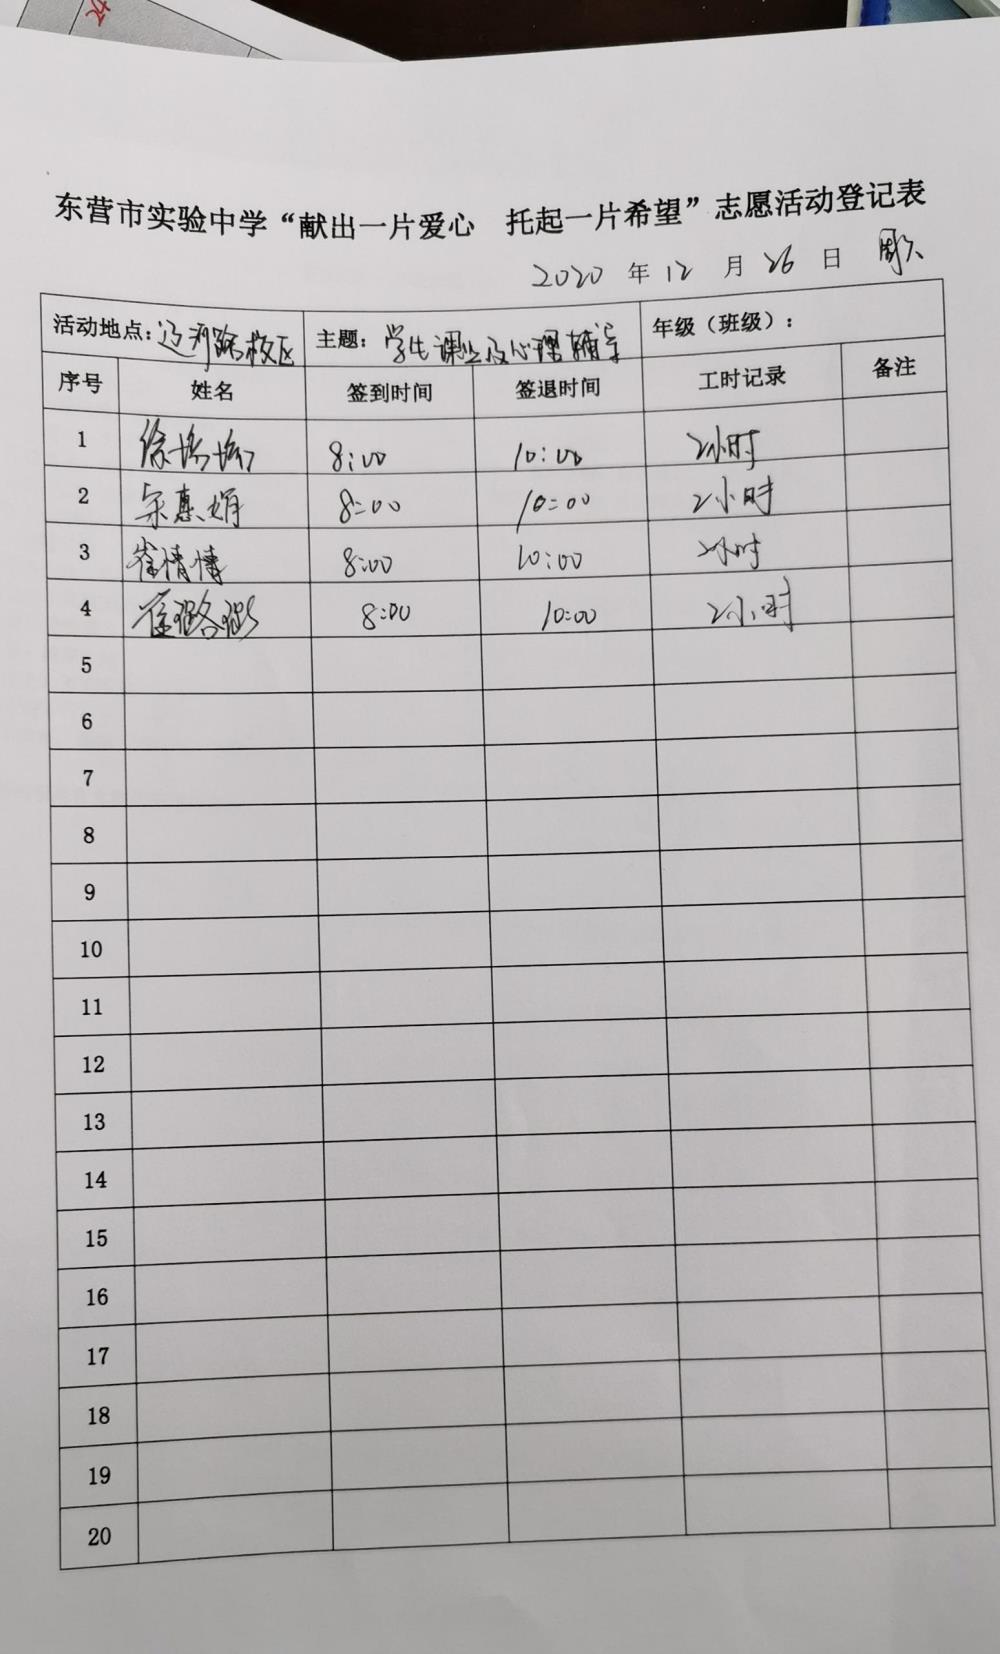 东营市实验中学“献出一片爱心 托起一片希望”志愿活动登记表
2020 年 12 月 26 日 周六
活动地点:辽河路校区 主题:学生课业及心理辅导 年级(班级):
序号 姓名 签到时间 签退时间 工时记录 备注
1 徐 8:00 10:00 2小时
2 宋惠娟 8:00 10:00 2小时
3 崔情情 8:00 10:00 2小时
4 崔璐璐 8:00 10:00 2小时
5
6
7
8
9
10
11
12
13
14
15
16
17
18
19
20